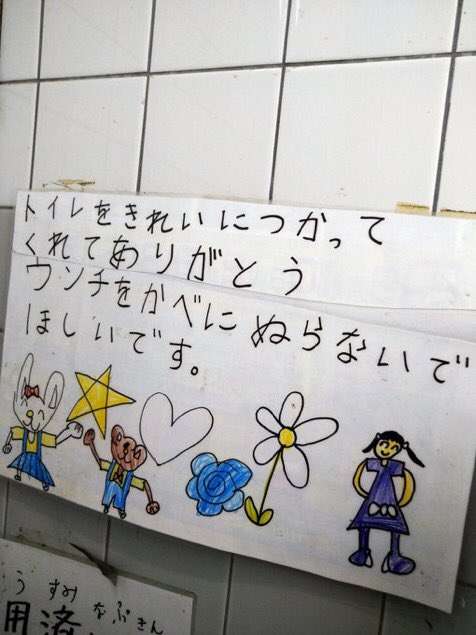 トイレをきれいにつかって
くれてありがとう
ウンチをかべにぬらないで
ほしいです。
うすみなぷきん
用済